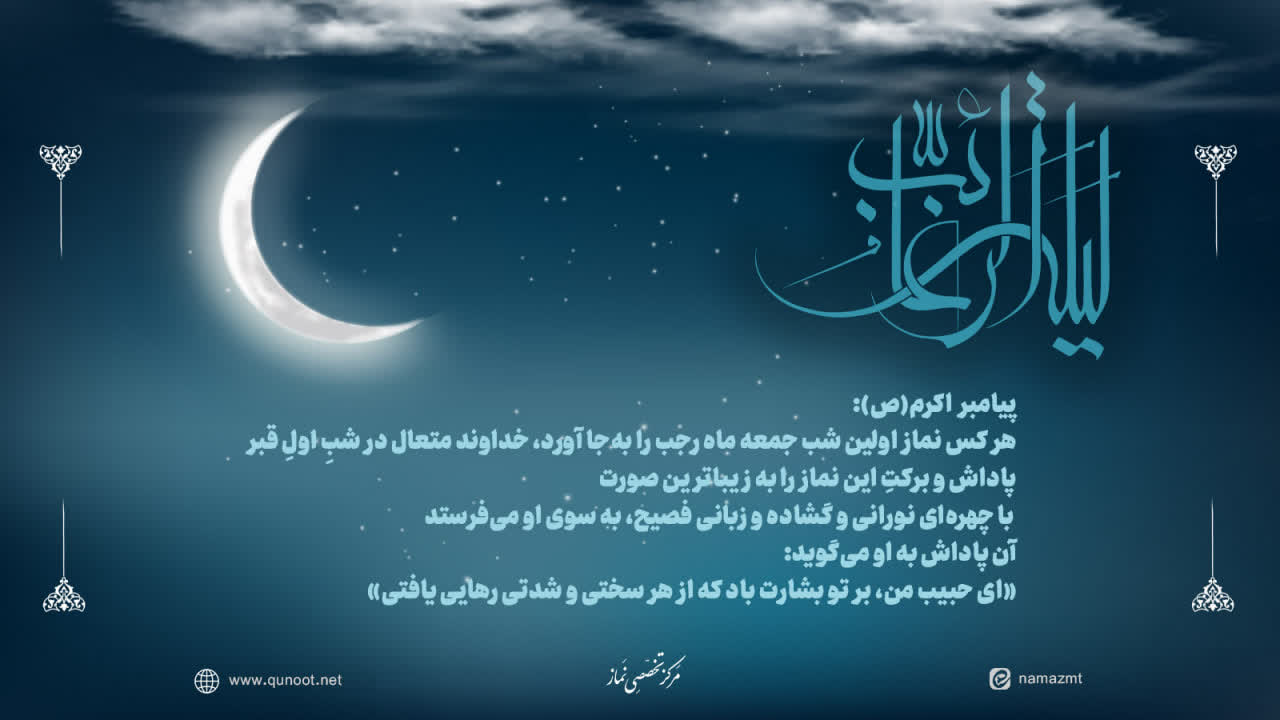 لیلة الرغائب
پیامبر اکرم(ص):
هر کس نماز اولین شب جمعه ماه رجب را به‌جا آورد، خداوند متعال در شبِ اولِ قبر
پاداش و برکتِ این نماز را به زیباترین صورت
با چهره‌ای نورانی و گشاده و زبانی فصیح، به سوی او می‌فرستد
آن پاداش به او می‌گوید:
«ای حبیب من، بر تو بشارت باد که از هر سختی و شدتی رهایی یافتی»
namazmt
مرکز تخصصی نماز
www.qunoot.net